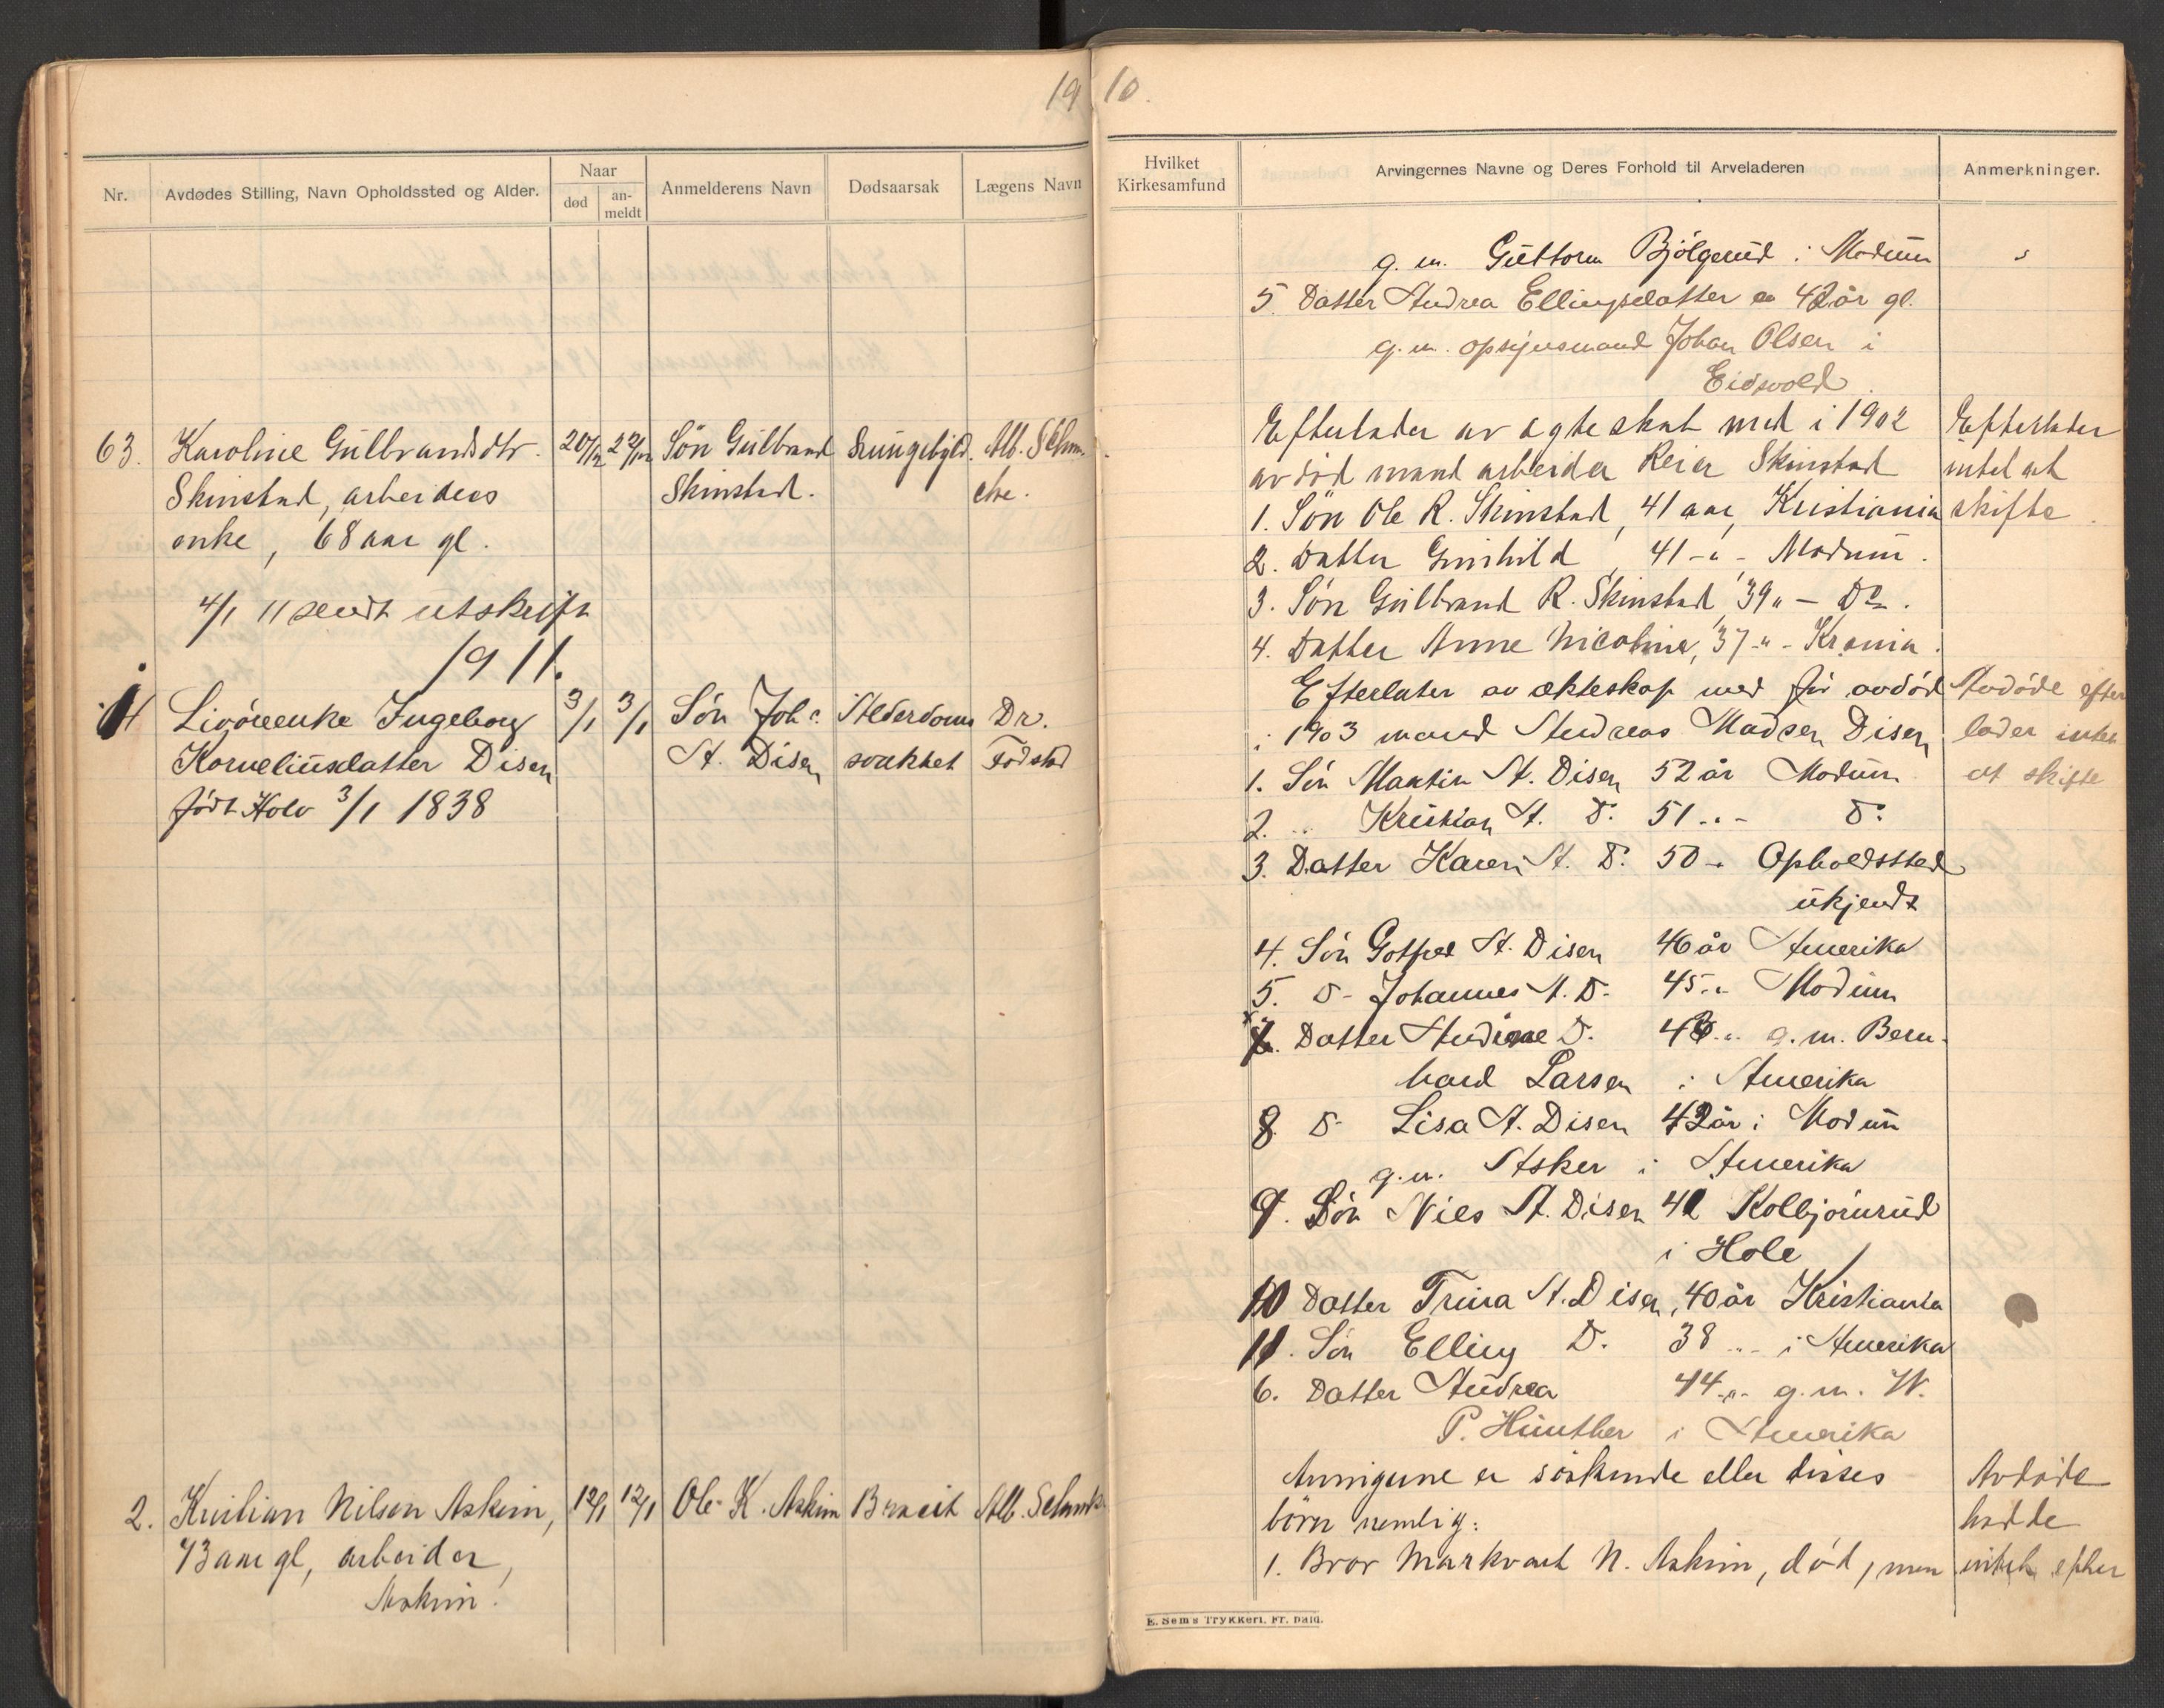 19 10.
Nr.
Avdødes Stilling, Navn Opholdssted og Alder.
Naar
død
an-
meldt
Anmelderens Navn
Dødsaarsak
Lægens Navn
63. Karoline Gulbrandsdtr. 20/12 22/12 Søn Gulbrand Lungebetd. Alb. Schm-
Skinstad, arbeiders Skinstad. cke.
enke, 68 aar gl.
4/1 11 sendt utskrift
1911.
1 Livøreenke Ingeborg 3/1 3/1 Søn Johs. Alderdoms Dr.
Korneliusdatter Disen A. Disen svakhet Fodstad
født Holv 3/1 1838
2. Kristian Nilsen Askim, 12/1 12/1 Ole K. Askim Alb. Schmk.
73 aar gl, arbeider,
Askim.
Hvilket
Kirkesamfund
Arvingernes Navne og Deres Forhold til Arveladeren
Anmerkninger.
g. m. Guttorm Bjølgerud i Modum
5. Datter Andrea Ellingsdatter 42 år gl.
g. m. opsynsmand Johan Olsen i
Eidsvold
Efterlader av ægteskab med i 1902
avdød mand arbeider Reier Skinstad
1. Søn Ole R. Skinstad, 41 aar, Kristiania
2. Datter Gunhild, 41 -"- Modum.
3. Søn Gulbrand R. Skinstad, 39 " - Do.
4. Datter Anne Nicoline, 37 -"- Krania.
Efterlater
intet at
skifte.
Efterlater av ekteskap med før avdød
i 1903 mand Andreas Madsen Disen
1. Søn Martin A. Disen 52 år Modum
2. " Kristian A. D. 51 -"- Do
3. Datter Karen A. D. 50 -" Opholdssted
ukjendt
4. Søn Gotfred A. Disen 46 år Amerika
5. D- Johannes A. D. 45 -"- Modum
7. Datter Andine D. 43 -"- g. m. Bern-
hard Larsen i Amerika
8. D- Lisa A. Disen 42 år i Modum
g. m. Asker i Amerika
9. Søn Nils A. Disen 41 Kolbjørnrud
i Hole
10 Datter Trina A. Disen, 40 år Kristiania
11. Søn Elling D. 38 -"- i Amerika
6. Datter Andrea 44 -"- g. m. W.
P. Hünther i Amerika
Avdøde efter
lader intet
at skifte
Arvingerne er søskende eller disses
børn nemlig:
1. Bror Markvart N. Askim, død, men
Avdøde
hadde
intet efter
E. Sem's Trykkeri, Fr.hald.